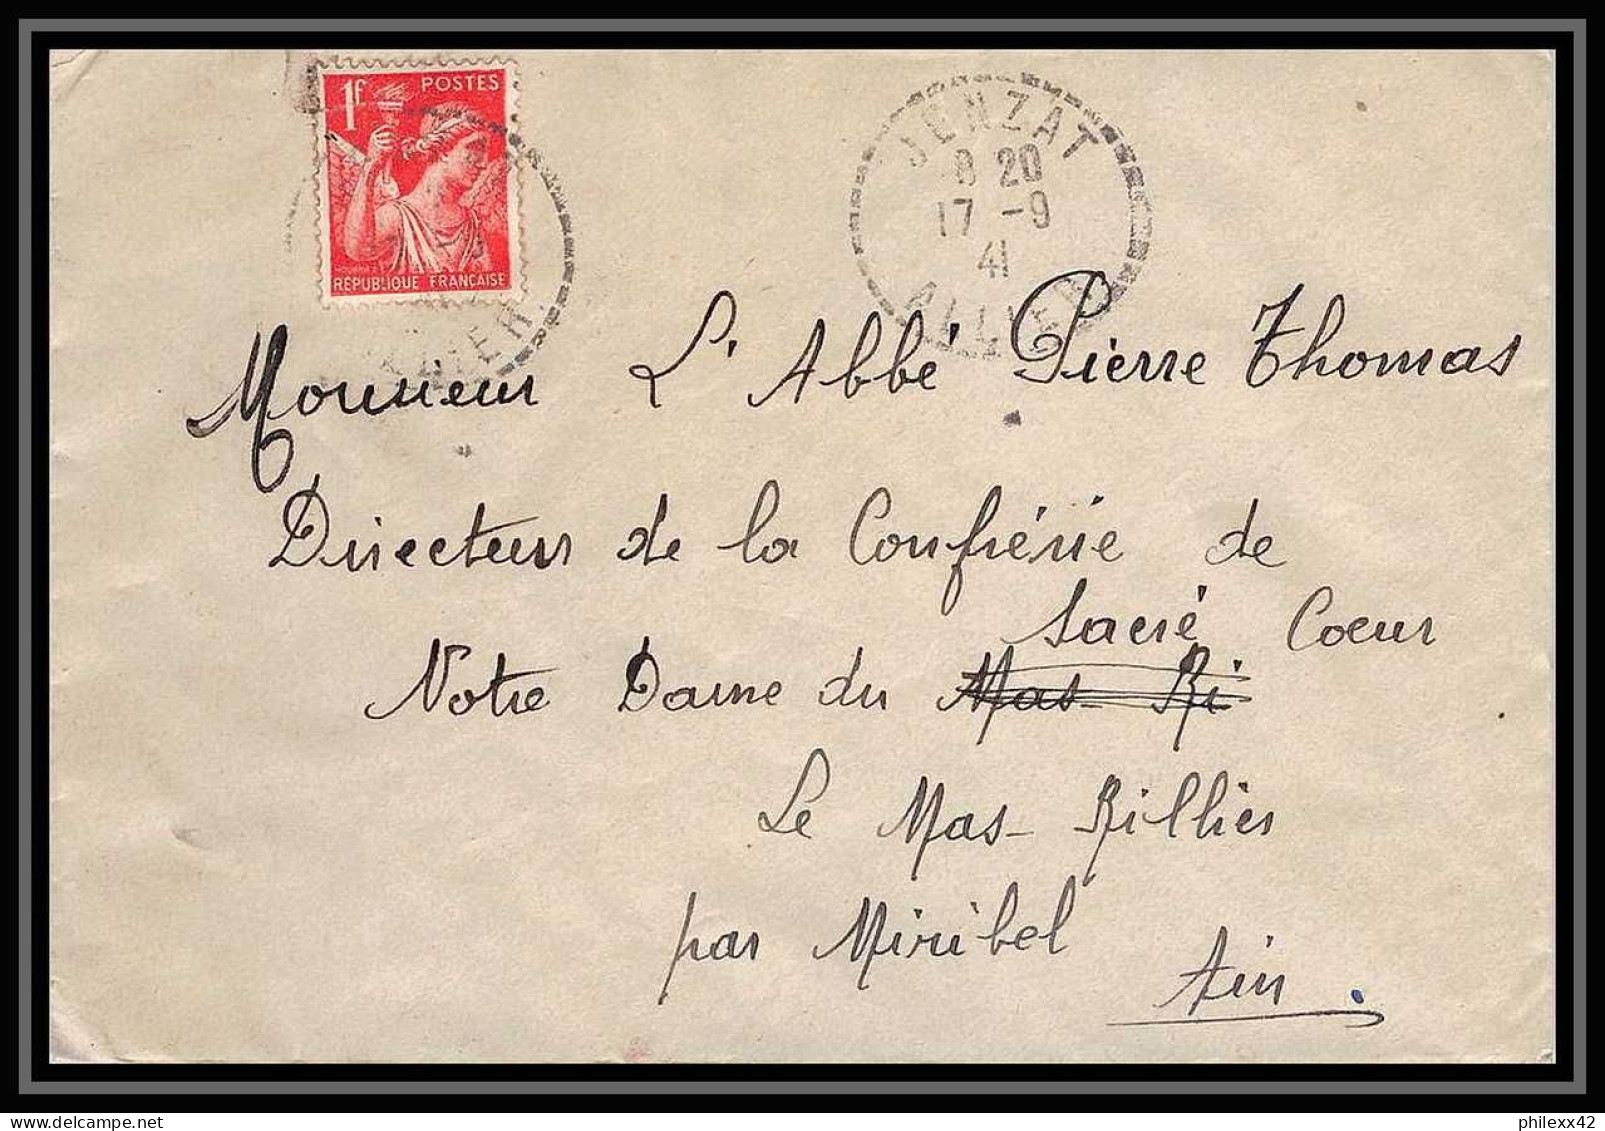 1f POSTES
RÉPUBLIQUE FRANÇAISE
JENZAT
8 20
17 -9
41
ALLIER
Monsieur L'Abbé Pierre Thomas
Directeur de la Confrérie de
Sacré Coeur
Notre Dame du Mas Ri
Le Mas-Rillier
par Miribel
Ain.
www.delcampe.net
philexx42